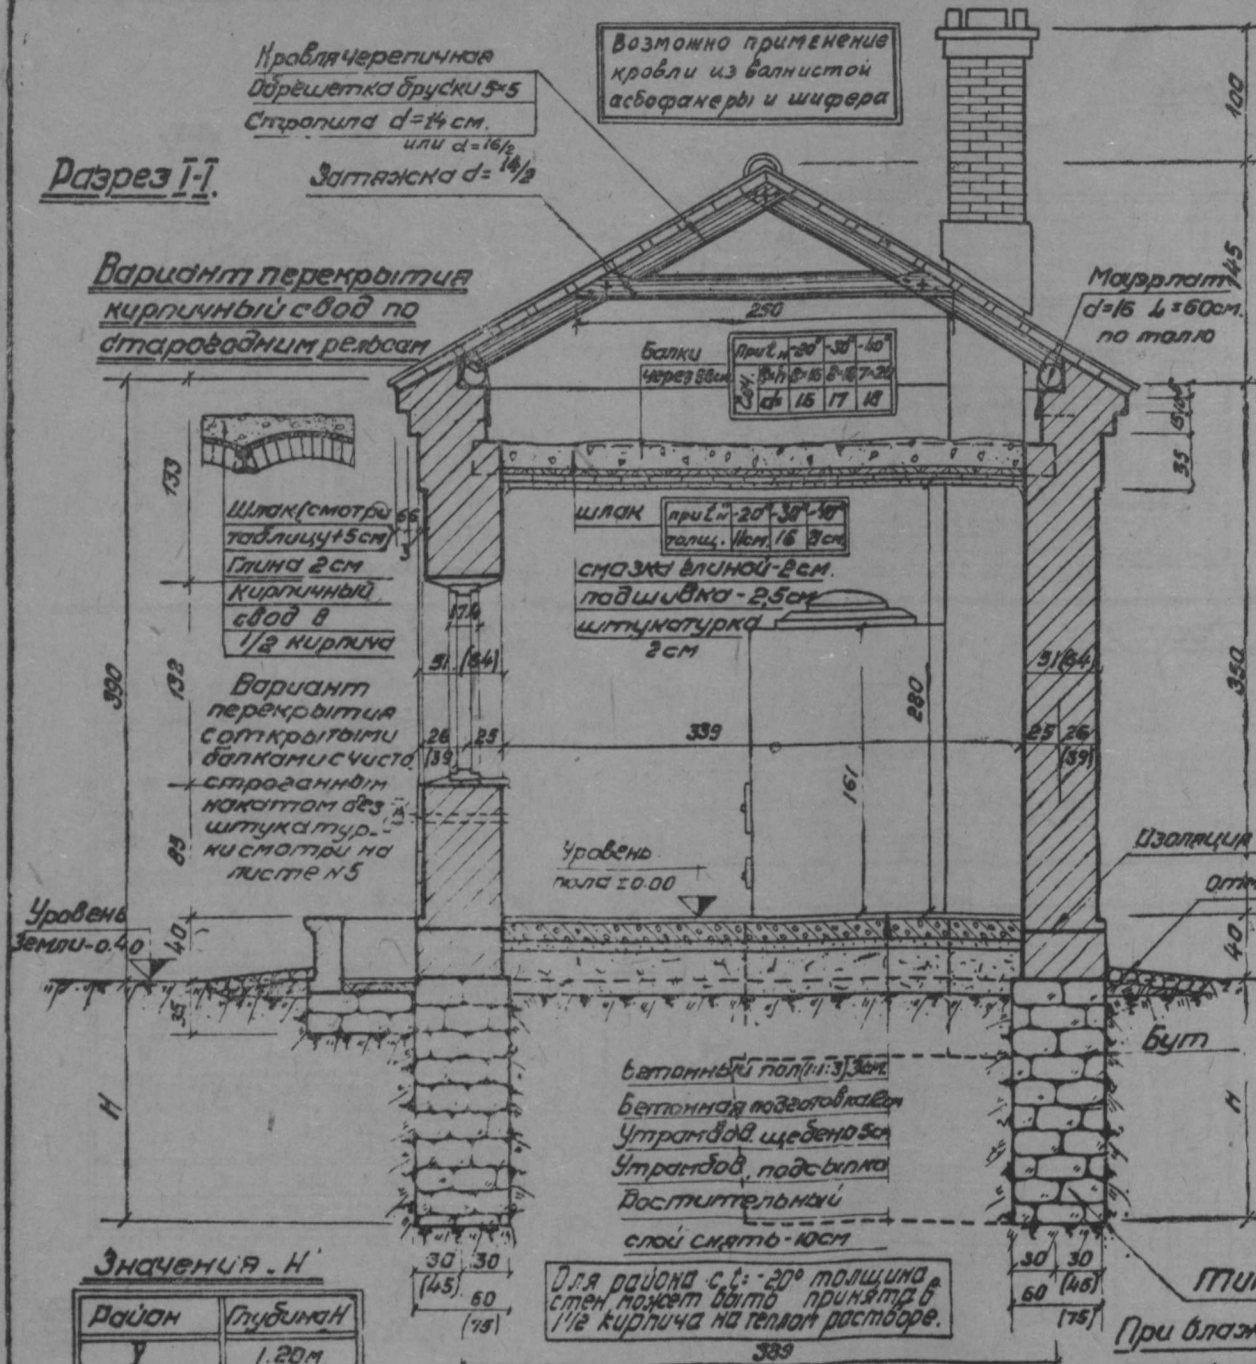 Кровля черепичная
Обрешетка бруски 5×5
Стропила d=14 см.
или d=16/2
Затяжка d=14/2
Возможно применение
кровли из волнистой
асбофанеры и шифера
Разрез I-I.
Вариант перекрытия
кирпичный свод по
стародным рельсам
Мауэрлат
d=16 L=60см.
по толю
100
145
250
Балки
через
При tн -20° -30° -40°
Сеч. 
d= 16 17 18
133
35
Шлак (смотри
таблицу +5см)
Глина 2 см
кирпичный
свод в
1/2 кирпича
шлак
при tн -20° -30° -40°
толщ. 11см 16 21см
смазка глиной-2см.
подшивка-2,5см
штукатурка
2см
51 (64)
51 (64)
390
132
350
280
161
339
26 25
(39)
25 26
(39)
Вариант
перекрытия
с открытыми
балками с чисто
строганным
накатом без
штукатур-
ки смотри на
листе №5
85
Уровень
пола ±0.00
Изоляция
Уровень
Земли-0.40
40
40
35
Бут
H
H
Бетонный пол (1:1:3) 3см
Бетонная подготовка
Утрамбов. щебень 5см
Утрамбов. подсыпка
Растительный
слой снять-10см
30 30
(45)
60
(75)
30 30
(45)
60
(75)
Значения H
Район Глубина H
V 1.20м
Для района с t: -20° толщина
стен может быть принята в
1 1/2 кирпича на теплом растворе.
389
При влаж